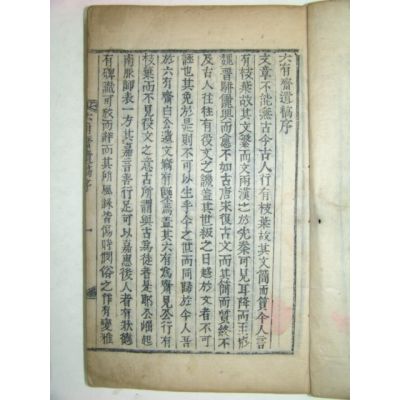 六有齋遺稿序
文章不能無古今古人行有枝葉故其文簡而質今人言
有枝葉故其文繁而文兩漢之於先秦可見耳降而王
魏晋俳儷興而愈不如古唐宋復古文而其簡而質終不
及古人往往有役文之譏蓋其世級之日趍於文者不可
誣也其免於是則可以生乎今之世而同歸於今人言
於六有齋自公遺文竊有 焉蓋其六有爲齋見公行有
枝葉而不見役文之意古所謂與古爲徒者是耶公 起
南服師表一方其嘉言善行足可以嘉惠後人者有 德
有碑識可攷而辭而其所屬詠皆傷時憫俗之作有變雅
六有齋遺稿序 一